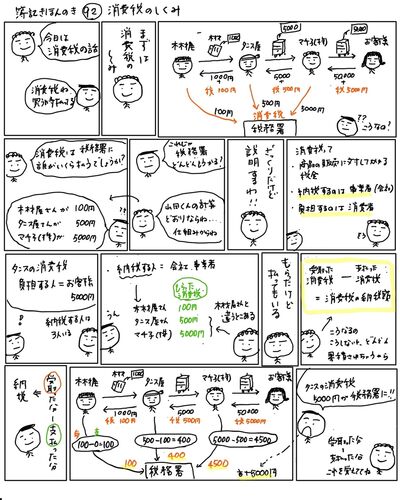 簿記きほんのき 92 消費税のしくみ
今日は
消費税の話
消費税か
まずは
消費税の
しくみ
木材屋
木材
タンス屋
タンス
マチ子(村)
お客様
1000円
5000
50,000
+
税100円
税500円
税5000円
100円
500円
5000円
消費税
税務署
??
こうなの?
消費税は税務署に
誰がいくら払うでしょうか?
木材屋さんが 100円
タンス屋さんが 500円
マチ子(村)が 5000円
??
これじゃ
税務署
どんどんもうかる?
山田くんの計算
どおりならね…
仕組みがちがうの
ざっくりだけど
説明するわ!!
消費税って
・商品の販売に対してかかる
税金
・納税するのは事業者(会社)
負担するのは消費者
タンスの消費税
負担する人=お客様
5000円
納税する人は
3人いる
・納税する人=会社、事業者
もらった
消費税
木材屋さん 100円
タンス屋さん 500円
マチ子(村) 5000円
うん
木材屋さんと
違うとこある
もらうだけど
払ってもいる
受取った
消費税
ー
支払った
消費税
=消費税の納税額
こうなるの
こうしないと、どんどん
累積されちゃうから
納税
受取った分ー支払った分
木材屋
木材
タンス屋
タンス
マチ子(村)
お客様
1000円
5000
50000
税100円
税500円
税5000円
100-0=100
500-100=400
5000-500=4500
100
400
4500
税務署
合計5000円
タンスの消費税
5000円が税務署に!!
受取った分ー
支払った分
これを覚えてね